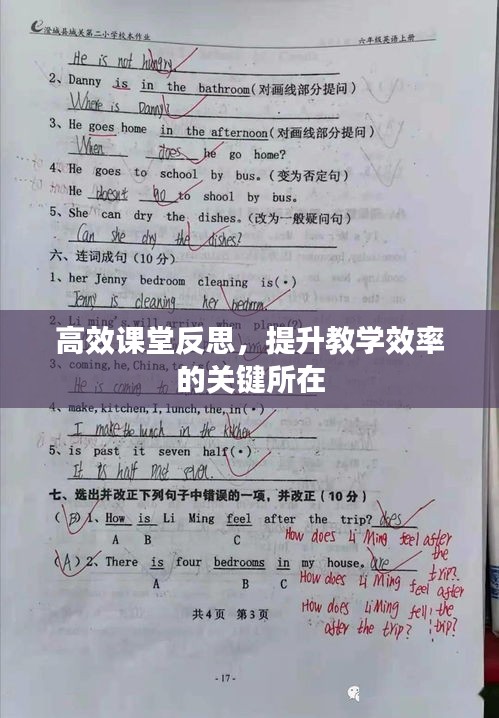 澄城县城关第二小学校本作业 六年级英语上册
He is not hungry.
2、Danny is in the bathroom(对画线部分提问)
Where is Danny?
3、He goes home in the afternoon(对画线部分提问)
When does he go home?
4、He goes to school by bus。(变为否定句)
He doesn't go to shool by bus.
5、She can dry the dishes.(改为一般疑问句)
Can she dry the dishes?
六、连词成句(10分)
1、her Jenny bedroom cleaning is(•)
Jenny is cleaning her bedroom.
高效课堂反思，提升教学效率
的关键所在
He is coming to
4、make,kitchen,I,lunch,the,in(•)
I make the lunch in the kitchen
5、is past it seven half(•)
It is half past seven.
七、选出并改正下列句子中错误的一项，并改正(10分)
(B)1、How is Li Ming feel after the trip? does
A B C
How does Li Ming feel after the trip?
(A)2、There is four bedrooms in my house. are
A B C
How does Li Ming feel after the trip?
How does Li Ming fell after the trip?
共4页 第3页
-17-